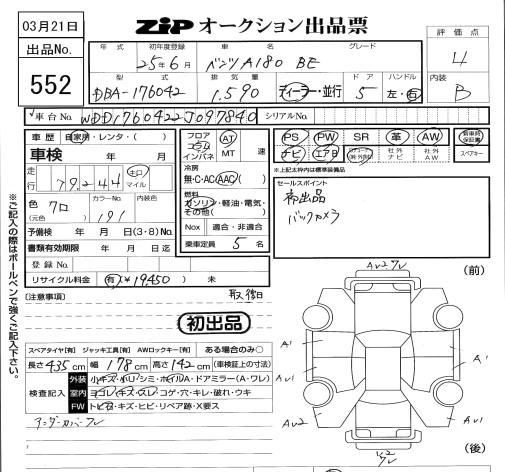 03月21日
ZIP オークション出品票
出品No.
552
年式 初年度登録 車名 グレード
25年6月 ベンツA180 BE
型式 排気量 ドア ハンドル
DBA-176042 1,590 ディーラー・並行 5 左・右
評価点
4
内装
B
車台No. WDD1760422J097840 シリアルNo.
車歴 自家用・レンタ・( )
車検 年 月
走行 79,244 キロ マイル
色 クロ カラーNo. 191 内装色
(元色)
予備検 年 月 日(3・8)No.
書類有効期限 年 月 日迄
登録No.
リサイクル料金 有(¥19,450) 未
フロア
コラム
インパネ
AT
MT 速
冷房
無・C・AC・AAC( )
燃料
ガソリン・軽油・電気・
その他( )
Nox 適合・非適合
乗車定員 5名
PS PW SR 革 AW 新車時保証書
ナビ エアB 社外ナビ 社外AW スペアキー
*上記太枠内は標準装備品
セールスポイント
初出品
バックカメラ
※ご記入の際はボールペンで強くご記入下さい。
[注意事項]
初出品
スペアタイヤ[有] ジャッキ工具[有] AWロックキー[有] ある場合のみ○
長さ435cm 幅178cm 高さ142cm (車検証上の寸法)
検査記入
外装 小キズ・小リシミ・ホイルA・ドアミラー(A・ワレ)
室内 ヨゴレ・キズ・スレ・コゲ・穴・キレ・破れ・ウキ
FW トビ石・キズ・ヒビ・リペア跡・X要ス
アンダーカバーワレ
(前)
A1
A1
AU1
AU2
AU1
(後)